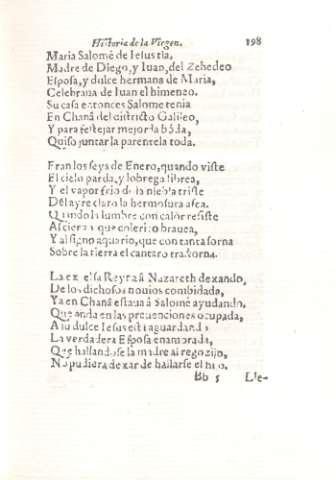 Historia de la Virgen. 198
Maria Salomè de Ierusalẽ,
Madre de Diego, y Iuan, del Zebedeo
Esposa, y dulce hermana de Maria,
Celebraua de Iuan el himeneo.
Su casa entonces Salome tenia
En Chanâ del districto Galileo,
Y para festejar mejor la bôda,
Quiso juntar la parentela toda.
Eran los seys de Enero, quando viste
El cielo parda, y lobrega librea,
Y el vapor frio de la niebla triste
Del ayre claro la hermosura afea.
Quando la lumbre con calor resiste
A
Y al signo aquario, que con tanta sorna
Sobre la tierra el cantaro trastorna.
La excelsa Reyna â Nazareth dexando,
De los dichosos nouios combidada,
Ya en Chanâ estaua â Salomè ayudando,
Que anda en las preuenciones ocupada,
A su dulce Iesus està aguardando
La verdadera Esposa enamorada,
Que hallandose la madre al regozijo,
No pudiera dexar de hallarse el hijo.
Bb 5 Lle-